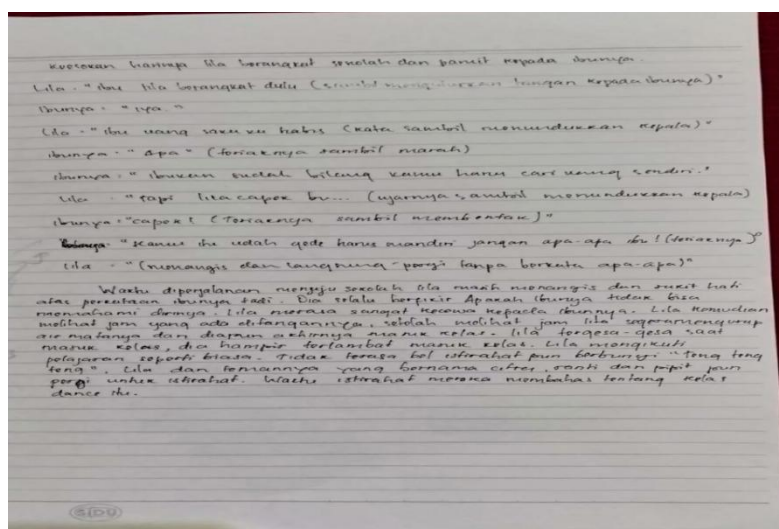 Keesokan harinya lila berangkat sekolah dan pamit kepada ibunya.
Lila : "ibu lila berangkat dulu (sambil mengulurkan tangan kepada ibunya)"
ibunya : "iya."
Lila : "ibu uang saku ku habis (kata sambil menundukkan kepala)"
ibunya : "Apa" (teriaknya sambil marah)
ibunya : "ibukan sudah bilang kamu harus cari uang sendiri."
Lila : "tapi lila capek bu... (ujarnya sambil menundukkan kepala)
ibunya : "capek! (Teriaknya sambil membentak)"
"kamu itu udah gede harus mandiri jangan apa-apa ibu! (teriaknya)"
Lila : "(menangis dan langsung pergi tanpa berkata apa-apa)"
Waktu diperjalanan menuju sekolah lila masih menangis dan sakit hati
atas perkataan ibunya tadi. Dia selalu berpikir Apakah ibunya tidak bisa
memahami dirinya. Lila merasa sangat kecewa kepada ibunnya. Lila kemudian
melihat jam yang ada ditangannya, setelah melihat jam lila segera mengusap
air matanya dan diapun akhirnya masuk kelas. lila tergesa-gesa saat
masuk kelas, dia hampir terlambat masuk kelas. Lila mengikuti
pelajaran seperti biasa. Tidak terasa bel istirahat pun berbunyi "Teng teng
teng". Lila dan temannya yang bernama citra, santi dan pipit pun
pergi untuk istirahat. Waktu istirahat mereka membahas tentang kelas
dance itu.
SIDU